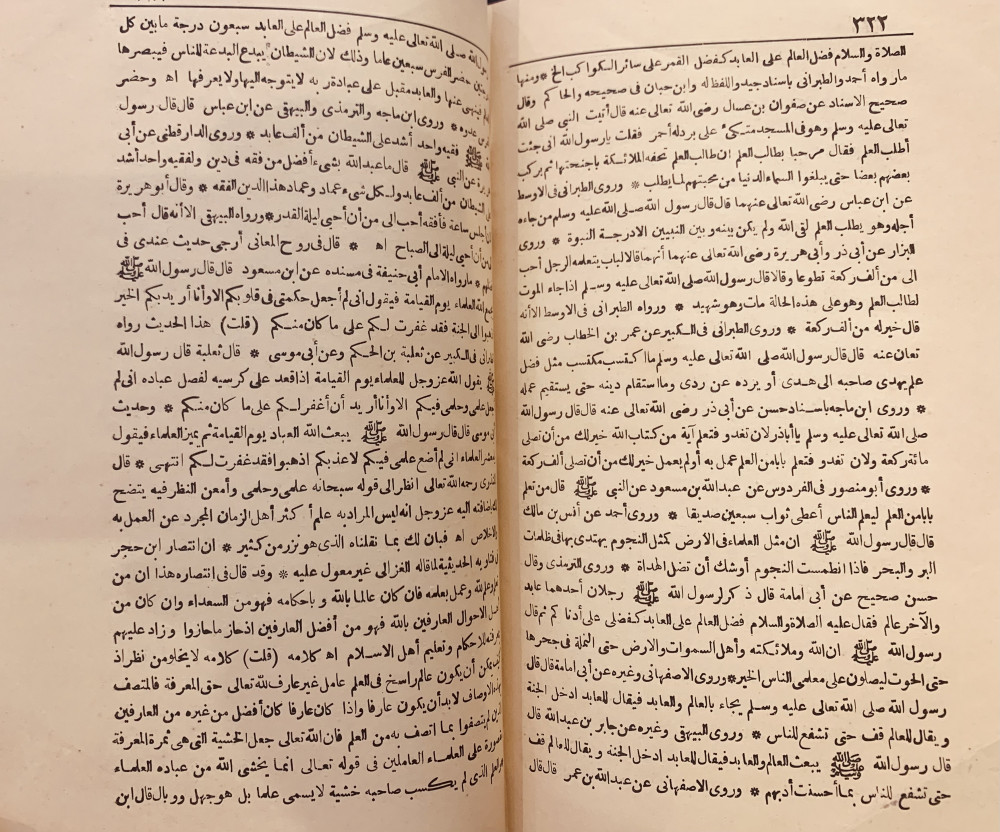 ٣٢٢
الصلاة والسلام فضل العالم على العابد كفضل القمر على سائر الكواكب الخ * ومنها
مارواه أحمد والطبرانى باسناد جيد واللفظ له وابن حبان فى صحيحه والحاكم وقال
صحيح الاسناد عن صفوان بن عسال رضى الله تعالى عنه قال أتيت النبى صلى الله
تعالى عليه وسلم وهو فى المسجد متكئ على بردله أحمر فقلت يارسول الله انى جئت
أطلب العلم فقال مرحبا بطالب العلم ان طالب العلم تحفه الملائكة باجنحتها ثم يركب
بعضهم بعضا حتى يبلغوا السماء الدنيا من محبتهم لما يطلب * وروى الطبرانى فى الاوسط
عن ابن عباس رضى الله تعالى عنهما قال قال رسول الله صلى الله عليه وسلم من جاءه
أجله وهو يطلب العلم لقى الله ولم يكن بينه وبين النبيين الادرجة النبوة * وروى
البزار عن أبى ذر وأبى هريرة رضى الله تعالى عنهما أنهما قالا لباب يتعلمه الرجل أحب
الى من ألف ركعة تطوعا وقالا قال رسول الله صلى الله تعالى عليه وسلم اذا جاء الموت
لطالب العلم وهو على هذه الحالة مات وهو شهيد * ورواه الطبرانى فى الاوسط الاأنه
قال خير له من ألف ركعة * وروى الطبرانى فى الكبير عن عمر بن الخطاب رضى الله
تعان عنه قال قال رسول الله صلى الله تعالى عليه وسلم ما كتسب مكتسب مثل فضل
علم يهدى صاحبه الى هدى أو يرده عن ردى وما استقام دينه حتى يستقيم عمله
* وروى ابن ماجه باسناد حسن عن أبى ذر رضى الله تعالى عنه قال قال رسول الله
صلى الله تعالى عليه وسلم ياأباذر لان تغدو فتعلم آية من كتاب الله خير لك من أن تصلى
مائة ركعة ولان تغدو فتعلم بابا من العلم عمل به أو لم يعمل خير لك من أن تصلى ألف ركعة
* وروى أبو منصور فى الفردوس عن عبد الله بن مسعود عن النبى ﷺ قال من تعلم
بابا من العلم ليعلم الناس أعطى ثواب سبعين صديقا * وروى أحمد عن أنس بن مالك
قال قال رسول الله ﷺ ان مثل العلماء فى الارض كمثل النجوم يهتدى بها فى ظلمات
البر والبحر فاذا انطمست النجوم أوشك أن تضل الهداة * وروى الترمذى وقال
حسن صحيح عن أبى امامة قال ذكر لرسول الله ﷺ رجلان أحدهما عابد
والآخر عالم فقال عليه الصلاة والسلام فضل العالم على العابد كفضلى على أدناكم ثم قال
رسول الله ﷺ ان الله وملائكته وأهل السموات والارض حتى النملة فى جحرها
حتى الحوت ليصلون على معلمى الناس الخير * وروى الاصفهانى وغيره عن أبى امامة قال قال
رسول الله صلى الله تعالى عليه وسلم يجاء بالعالم والعابد فيقال للعابد ادخل الجنة
ويقال للعالم قف حتى تشفع للناس * وروى البيهقى وغيره عن جابر بن عبد الله قال
قال رسول الله ﷺ يبعث العالم والعابد فيقال للعابد ادخل الجنة ويقال للعالم قف
حتى تشفع للناس بما أحسنت أدبهم * وروى الاصفهانى عن عبد الله بن عمر قال قال
الله صلى الله تعالى عليه وسلم فضل العالم على العابد سبعون درجة ما بين كل
حضر الفرس سبعين عاما وذلك لان الشيطان يبدع البدعة للناس فيبصرها
فينهى عنها والعابد مقبل على عبادة ربه لا يتوجه اليها ولا يعرفها اه وحضر
عدوه * وروى ابن ماجه والترمذى والبيهقى عن ابن عباس قال قال رسول
ﷺ فقيه واحد أشد على الشيطان من ألف عابد * وروى الدارقطنى عن أبى
عن النبى ﷺ قال ما عبد الله بشىء أفضل من فقه فى دين ولفقيه واحد أشد
الشيطان من ألف عابد ولكل شىء عماد وعماد هذا الدين الفقه * وقال أبو هريرة
أجلس ساعة فأفقه أحب الى من أن أحيى ليلة القدر * ورواه البيهقى الاأنه قال أحب
من أن أحيى ليلة الى الصباح اه * قال فى روح المعانى أرجى حديث عندى فى
* مارواه الامام أبى حنيفة فى مسنده عن ابن مسعود قال قال رسول الله ﷺ
الله العلماء يوم القيامة فيقول انى لم أجعل حكمتى فى قلوبكم الاوأنا أريد بكم الخير
الى الجنة فقد غفرت لكم على ما كان منكم (قلت) هذا الحديث رواه
فى الكبير عن ثعلبة بن الحكم وعن أبى موسى * قال ثعلبة قال رسول الله
ﷺ يقول الله عزوجل للعلماء يوم القيامة اذا قعد على كرسيه لفصل عباده انى لم
علمى وحلمى فيكم الاوأنا أريد أن أغفر لكم على ما كان منكم * وحديث
موسى قال قال رسول الله ﷺ يبعث الله العباد يوم القيامة ثم يميز العلماء فيقول
العلماء انى لم أضع علمى فيكم لاعذبكم اذهبوا فقد غفرت لكم انتهى * قال
رحمه الله تعالى انظر الى قوله سبحانه علمى وحلمى وأمعن النظر فيه يتضح
باضافته اليه عزوجل انه ليس المراد به علم أكثر أهل الزمان المجرد عن العمل به
والاخلاص اه فبان لك بما نقلناه الذى هو نزر من كثير * ان انتصار ابن حجر
فتاويه الحديثية لما قاله الغزالى غير معول عليه * وقد قال فى انتصاره هذا ان من
وعمل بعلمه فان كان عالما بالله وباحكامه فهو من السعداء وان كان من
الاحوال العارفين بالله فهو من أفضل العارفين اذ حاز ما حازوا وزاد عليهم
للاحكام وتعليم أهل الاسلام اه كلامه (قلت) كلامه لا يخلو من نظر اذ
يمكن أن يكون عالم راسخ فى العلم عامل غير عارف لله تعالى حق المعرفة فالمتصف
الاوصاف لا بد أن يكون عارفا واذا كان عارفا كان أفضل من غيره من العارفين
لم يتصفوا بما اتصف به من العلم فان الله تعالى جعل الخشية التى هى ثمرة المعرفة
على العلماء العاملين فى قوله تعالى انما يخشى الله من عباده العلماء
الذى لم يكسب صاحبه خشية لا يسمى علما بل هو جهل ووبال قال ابن